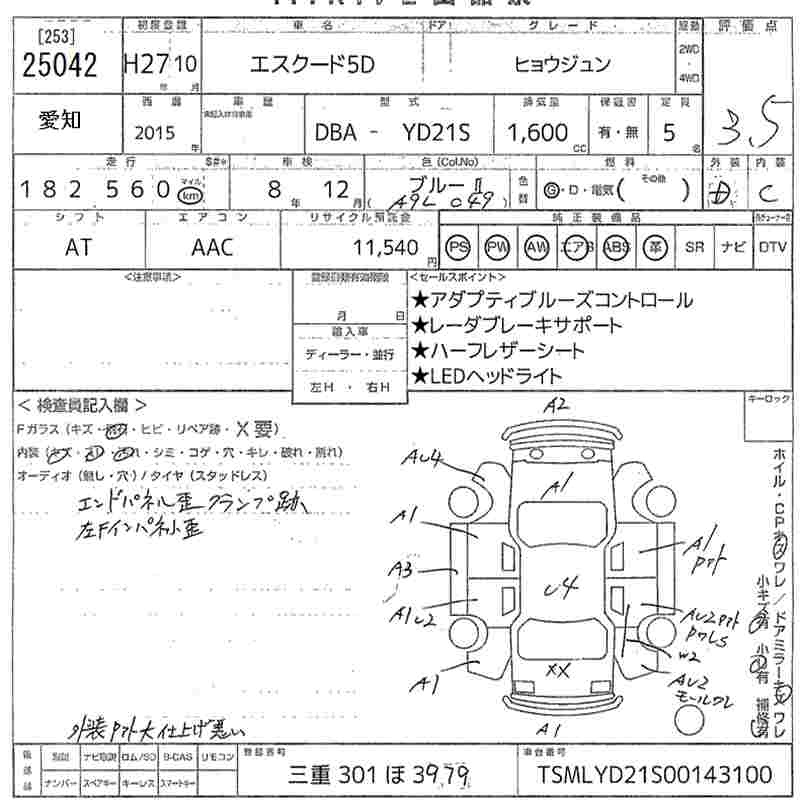 [253]
25042
初度登録
H27 10
年 月
車名
エスクード5D
ドア!
グレード
ヒョウジュン
駆動
2WD
4WD
評価点
3.5
愛知
西暦
2015
年
車歴
型式
DBA - YD21S
排気量
1,600
cc
有・無
定員
5
名
走行
182560
マイル
km
車検
8年 12月
色(Col.No)
ブルーⅡ
(A9L 049)
色替
燃料
G・D・電気( その他 )
外装
内装
C
シフト
AT
エアコン
AAC
リサイクル預託金
11,540
円
純正装備品
PS PW AW エアB ABS 革 SR ナビ DTV
<注意事項>
登録書類有効期限
月 日
輸入車
ディーラー・並行
左H ・ 右H
<セールスポイント>
★アダプティブルーズコントロール
★レーダブレーキサポート
★ハーフレザーシート
★LEDヘッドライト
キーロック
< 検査員記入欄 >
Fガラス(キズ・ ・ヒビ・リペア跡・X要)
内装(キズ・ ・ れ・シミ・コゲ・穴・キレ・破れ・割れ)
オーディオ(無し・穴)/タイヤ(スタッドレス)
エンドパネル歪 クランプ跡、
左Fインパネ小歪
外装タッチ大仕上げ悪い
A2
AU4
A1
A1
A1
A3
U4
A1U2
XX
W2
AU2
モールワレ
A1
A1
ナビ取説
ロム/SD
B-CAS
リモコン
ナンバー
スペアキー
キーレス
スマートキー
登録番号
三重 301 ほ 3979
車台番号
TSMLYD21S00143100